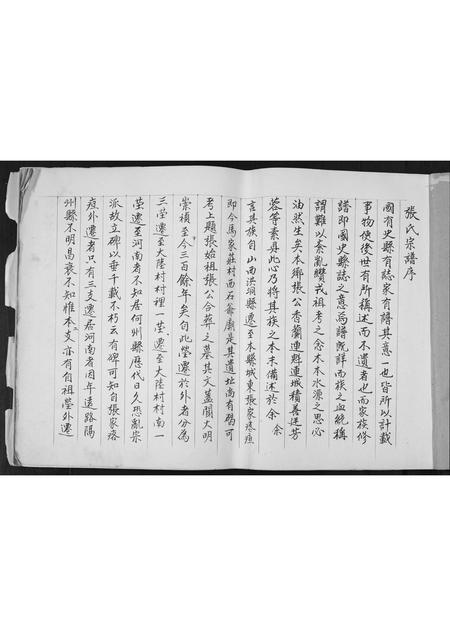 張氏宗譜序
國有史縣有誌家有譜其意一也皆所以計載
事物使後世有所稱述而不遺者也而家族修
譜即國史縣誌之意爲譜既詳而族之血統稱
謂難以紊亂贊戎祖考之念木本水源之思必
油然生矣本鄉張公香蘭連魁連城積善廷芳
蓉等素具此心乃將其族之本末備述於余余
言其族自山西洪洞縣遷至本縣城東張家疙疸
即今馬家莊村西石爺廟是其遺址尚有碣可
考上題張始祖張公合葬之墓其文蓋闕大明
崇禎至今三百餘年矣自此塋遷於外者分爲
三塋遷至大陸村村裡一塋遷至大陸村村南一
塋遷至河南者不知居何州縣歷代日久恐亂宗
派故立碑以垂千載不朽云有碑可知自張家疙
疸外遷者只有三支遷居河南者因年遠路隔
州縣不明昌衰不知惟本二支亦有自祖塋外遷